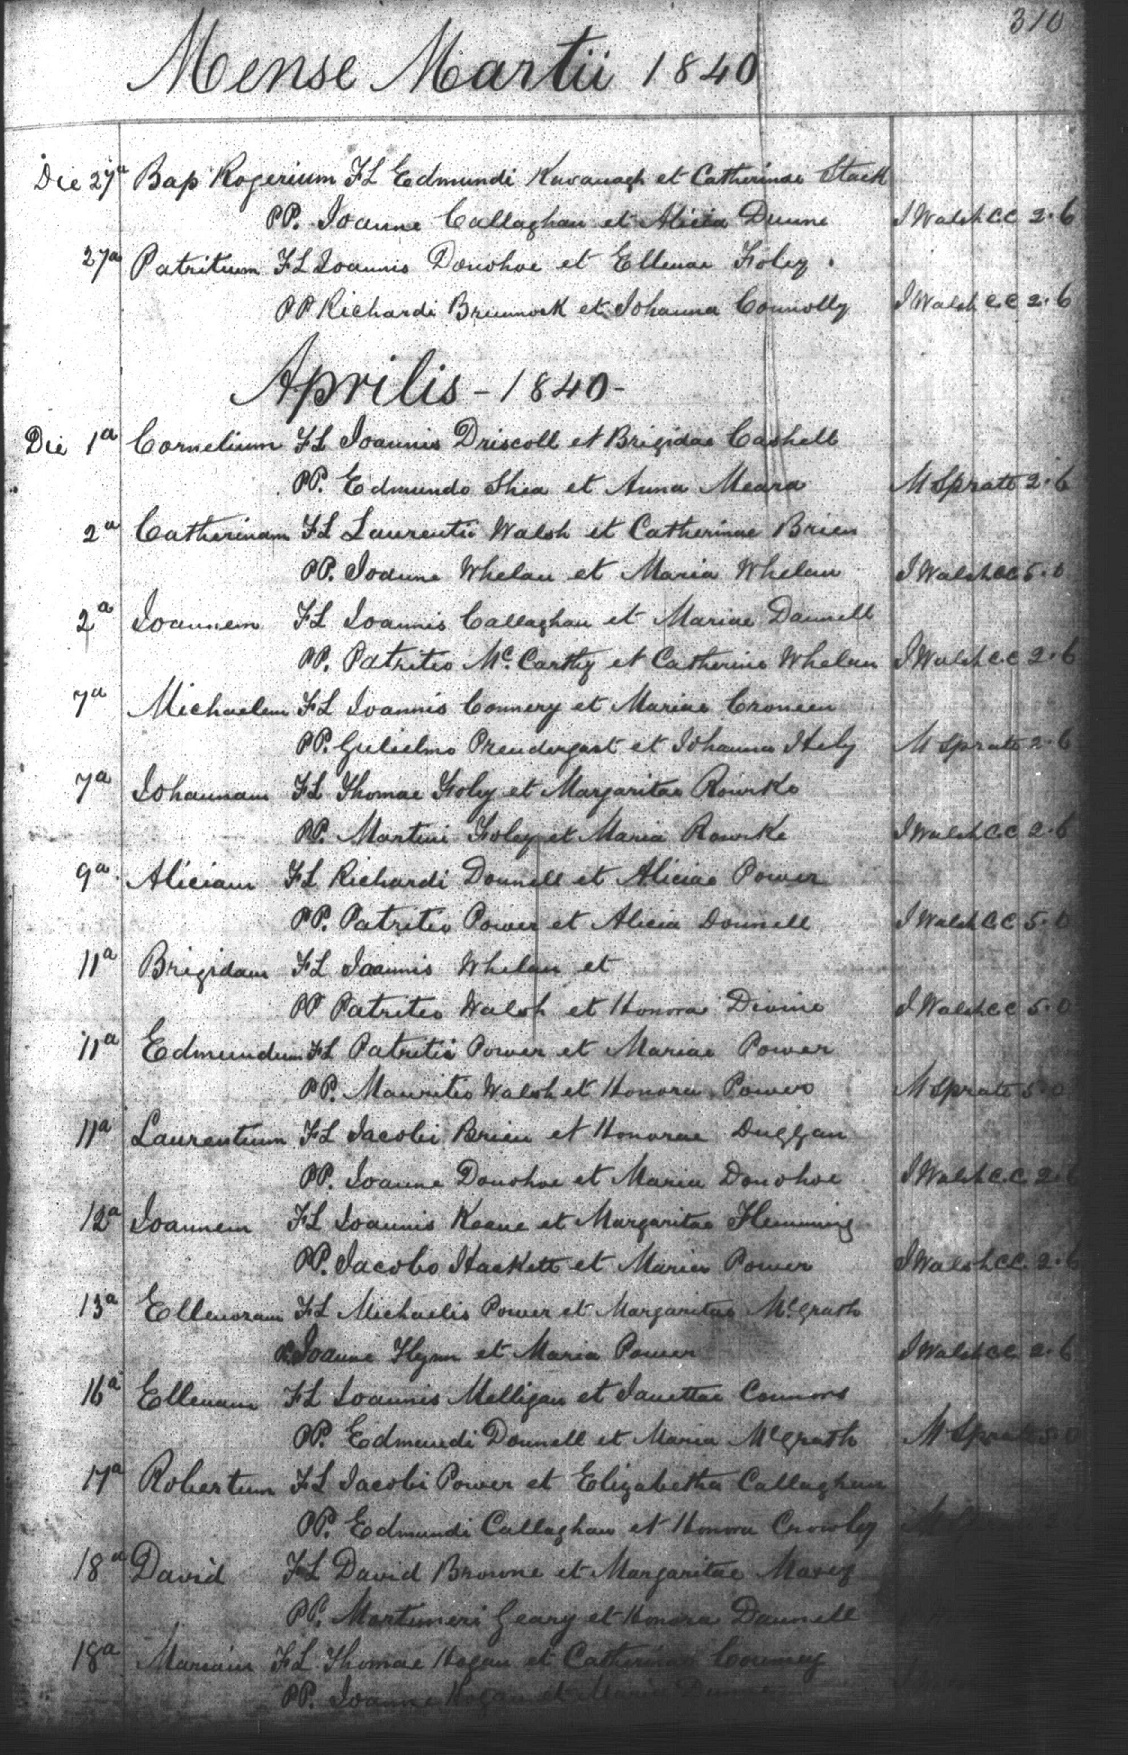 310
Mense Martii 1840
Die 27a Bap Rogerium FL Edmundi Kavanagh et Catherinae Stack
PP. Joanne Callaghan et Alicia Dunne J Walsh CC 2.6
27a Patritium FL Joannis Donohoe et Ellenae Foley.
PP Richardi Brunnock et Johanna Connolly J Walsh CC 2.6
Aprilis - 1840 -
Die 1a Cornelium FL Joannis Driscoll et Brigidae Cashell
PP. Edmundo Shea et Anna Meara M Spratt 2.6
2a Catherinam FL Laurentii Walsh et Catherinae Brien
PP. Joanne Whelan et Maria Whelan J Walsh CC 5.0
2a Joannem FL Joannis Callaghan et Mariae Dannell
PP. Patritio Mc. Carthy et Catherine Whelan J Walsh CC 2.6
7a Michaelem FL Joannis Connery et Mariae Croneen
PP. Gulielmo Prendergast et Johanna Hely M Spratt 2.6
7a Johannam FL Thomae Foley et Margaritae Rourke
PP. Martini Foley et Maria Rourke J Walsh CC 2.6
9a. Aliciam FL Richardi Donnell et Aliciae Power
PP. Patritio Power et Alicia Donnell J Walsh CC 5.0
11a Brigidam FL Joannis Whelan et
PP Patritio Walsh et Honora Divine J Walsh CC 5.0
11a Edmundum FL Patritii Power et Mariae Power
PP. Mauritio Walsh et Honora Power M Spratt 5.0
11a Laurentium FL Jacobi Brien et Honorae Duggan
PP. Joanne Donohoe et Maria Donohoe J Walsh C.C. 2.6
12a Joannem FL Joannis Keane et Margaritae Flemming
PP. Jacobo Hackett et Maria Power J Walsh CC. 2.6
13a Ellenoram FL Michaelis Power et Margaritae McGrath
P. Joanne Flynn et Maria Power J Walsh CC 2.6
16a Ellenam FL Joannis Melligan et Janettae Connors
PP. Edmundi Donnell et Maria McGrath M Spratt 5.0
17a Robertum FL Jacobi Power et Elizabetha Callaghan
PP. Edmundi Callaghan et Honora Crowley
18a David FL David Browne et Margaritae
PP. Geary et Honora Dannell
18a Mariam FL Thomae Hogan et Catherinae
PP. Joanne Hogan et Maria